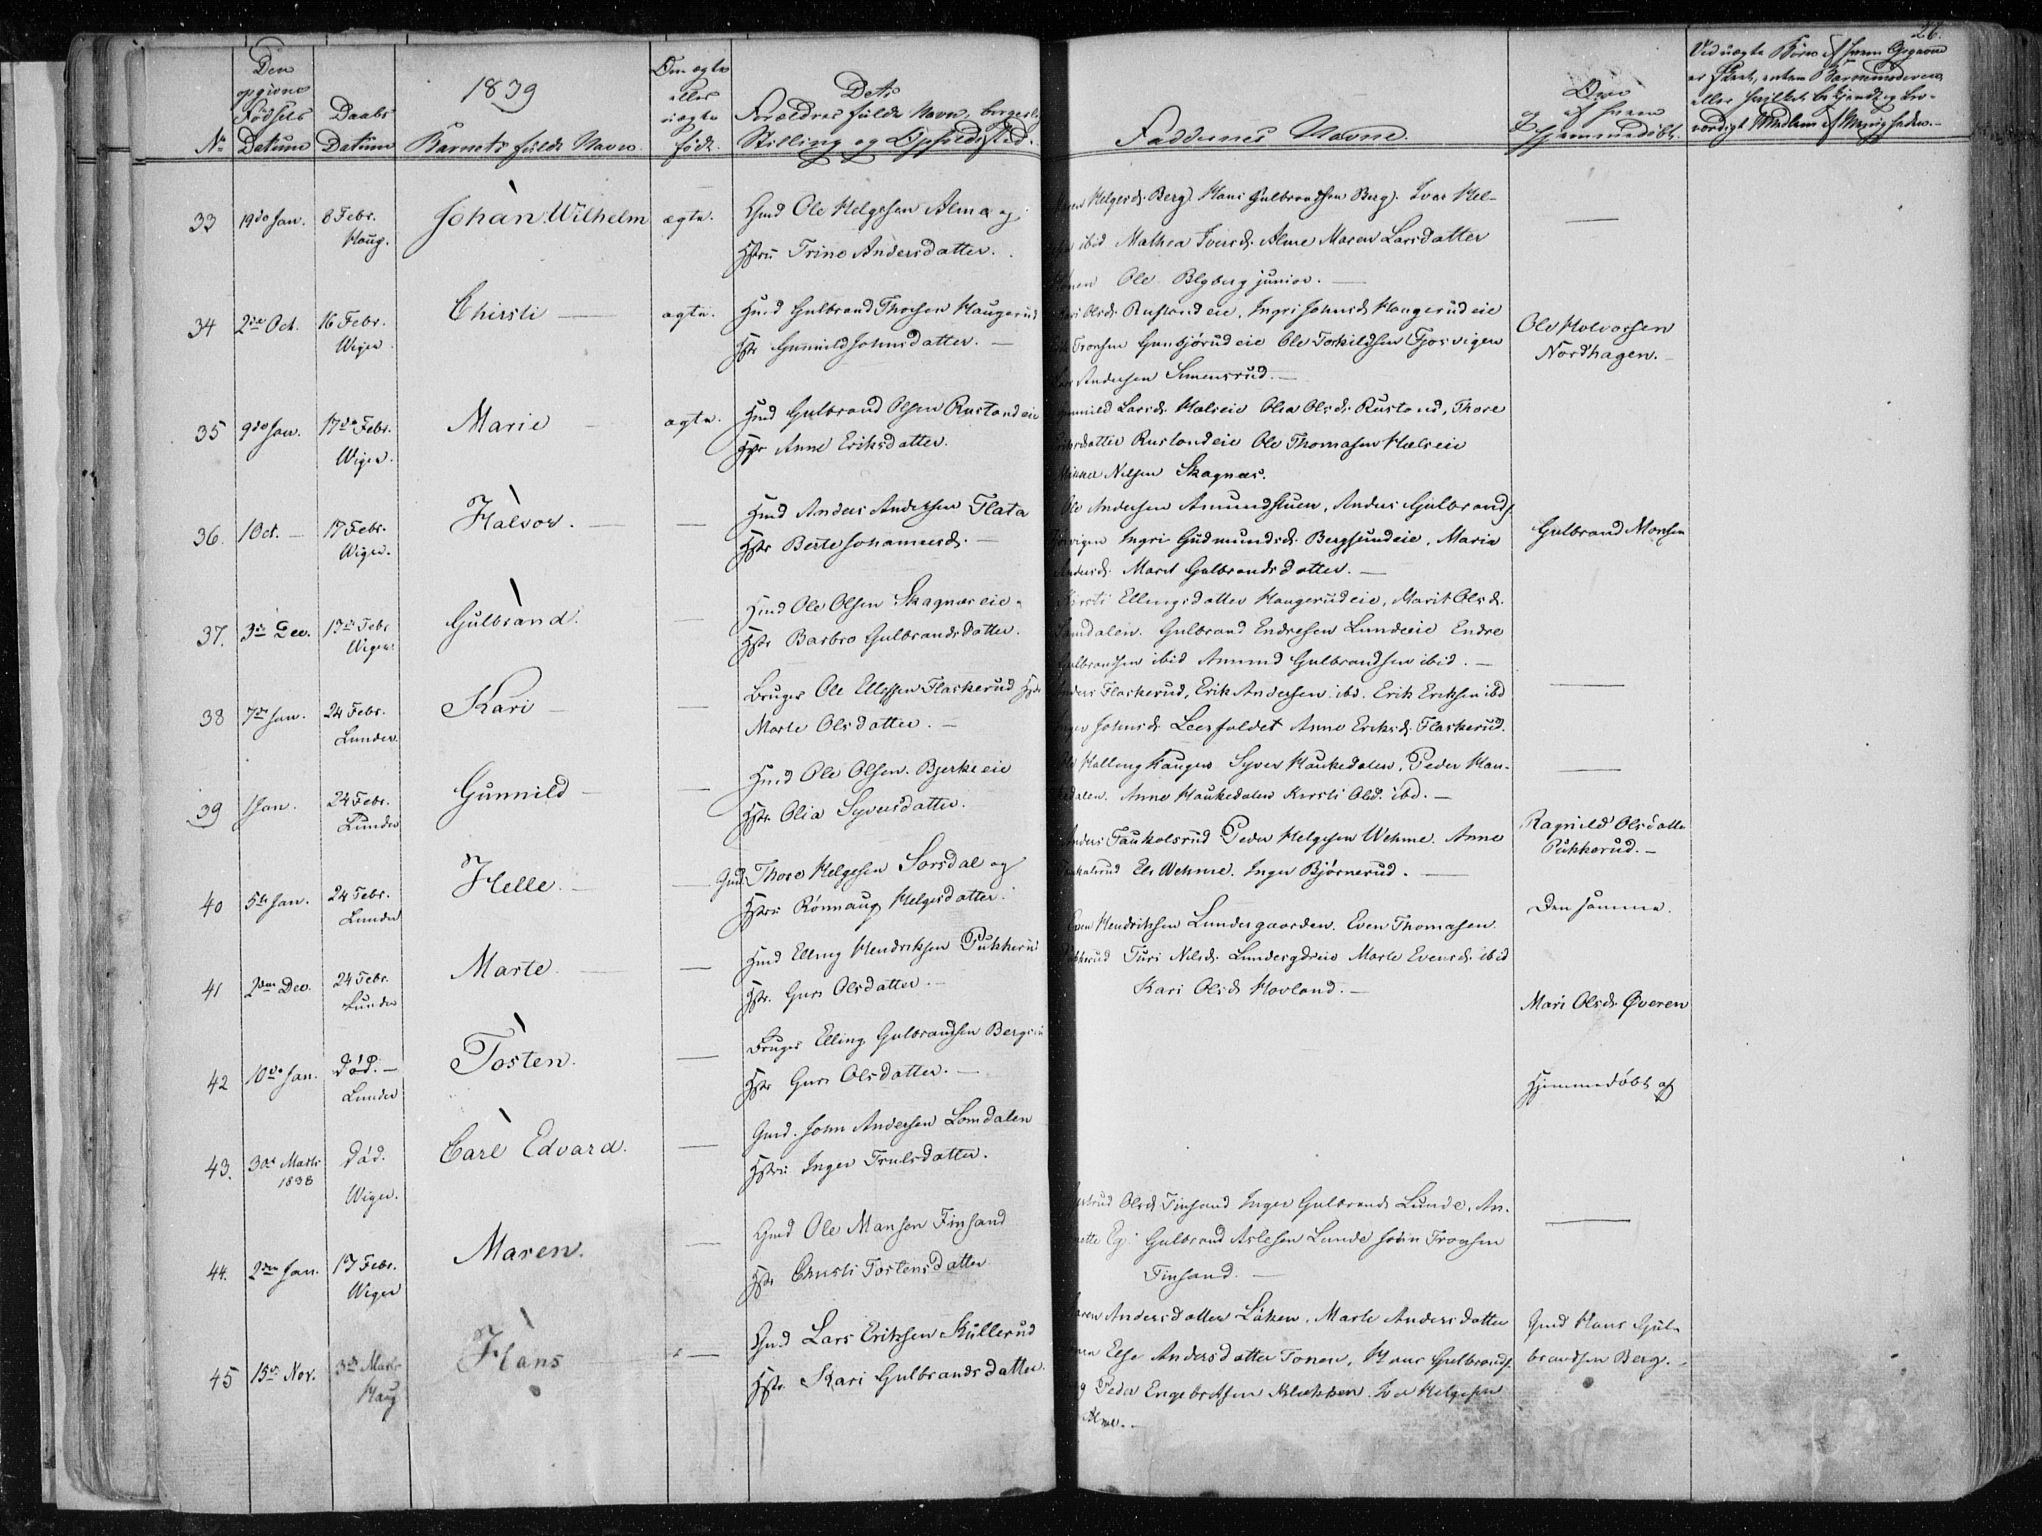 26.
Den
opgivne
Fødsels
Datum
No
Daabs
Datum
1839
Barnets fulde Navn
Om ægte
eller
uægte
født.
Dets
Forældres fulde Navn, borgerlig
Stilling og Opholds Sted.
Faddernes Navne.
Om
af hvem
hjemmedøbt.
Ved uægte Børn af hvem Opgaven
er skeet, enten Barnemoderen,
eller hvilket bekjendt og tro-
værdigt Medlem af Menigheden.
33 19de Jan. 8 Febr. Johan Wilhelm ægte. Gmd Ole Helgesen Alme og
Haug.
Hstru Trine Andersdatter.
Helgesd. Berg. Hans Gulbrandsen Berg. Iver Hel-
ibid Mathea Iversd. Alme Maren Larsdatter
Ole Blyberg junior.
34 2den Oct. 16 Febr. Chirsti ægte. Husmd Gulbrand Thorsen Haugerud
Wiger.
Hstr Gunnild Johnsdatter.
Olsd. Rustandeie, Ingri Johnsd. Haugerudeie
Tronsen Gunbjørudeie Ole Torkildsen Tjosvigen
Andersen Simensrud.
Ole Halvorsen
Nordhagen.
35 9de Jan. 17de Febr. Marie ægte. Hmd Gulbrand Olsen Rustandeie
Wiger.
Hstr Anne Eriksdatter.
Larsd. Hælseie Olea Olsd. Rustand, Thore
Rustandeie Ole Thomasen Hælseie
Nilsen Skagnæs.
36. 1 Oct. 17 Febr. Halvor. Hmd Anders Andersen Flata
Wiger.
Hstr Berte Johannesd.
Ole Andersen Amundstuen, Anders Gulbrands.
Ingri Gudmundsd. Bergsundeie, Maria
Andersd. Marit Gulbrandsdatter.
Gulbrand Monsen
37. 3de Dec. 17de Febr Gulbrand. Hmd Ole Olsen Skagnæseie
Wiger.
Hstr Barbro Gulbrandsdatter.
Kirsti Ellingsdatter Haugerudeie, Marit Olsd.
Lomdalen. Gulbrand Endresen Lundeeie Endre
Gulbrandsen ibid Amund Gulbrandsen ibid.
38 7de Jan. 24 Febr. Kari Bruger Ole Ellefsen Flaskerud Hstr
Lunder
Marte Olsdatter.
Anders Flaskerud, Erik Andersen ibd. Erik Eriksen ibd
Inger Johnsd. Leerfaldet Anne Eriksd. Flaskerud.
39 1 Jan. 24 Febr. Gunnild Hmd Ole Olsen Bjerkeeie
Lunder
Hstr. Olia Syversdatter.
Syver Haukedalen, Peder Hau-
kedalen. Anne Haukedalen Kirsti Olsd. ibd.
Ragnild Olsdatter
Pukkerud.
40 5te Jan. 24 Febr. Helle. Gmd. Thore Helgesen Sørsdal og
Lunder
Hstru Rønnaug Helgesdatter.
Anders Taukolsrud Peder Helgesen Wehme. Anne
Els Wehme. Inger Bjørnerud.
Den samme.
41 2den Dec. 24 Febr. Marte. Hmd Elling Hendriksen Pukkerud
Lunder
Hstr. Guri Olsdatter.
Even Hendriksen Lundesgaarden. Even Thomasen
Pukkerud Turi Nilsd. Lundesgdeie Marte Evensd. ibid
Kari Olsd. Hovland.
Mari Olsd. Øveren
42 10de Jan. Død. Tosten. Bruger Elling Gulbrandsen Bergseie
Lunder
Hstr Guri Olsdatter.
Hjemmedøbt af
43. 30te Marts Død. Carl Edvard. Gmd. John Andersen Lomdalen
1838
Wiger.
Hstru Inger Trulsdatter.
44. 2den Jan. 17 Febr. Maren. Gmd Ole Mansen Finsand
Wiger
Hstr Chirsti Tostensdatter
Gertrud Olsd. Finsand Inger Gulbrands. Lunde, An-
nette Eg. Gulbrand Aslesen Lunde John Tronsen
Finsand.
45 15de Nov. 3de Marts Hans Gmd Lars Eriksen Skullerud
Haug
Hstr. Kari Gulbrandsdatter.
Maren Andersdatter Løken, Marte Andersdatter
Else Andersdatter Tonen, Hans Gulbrands.
Peder Engebretsen Klækken Iver Helgesen
Alme.
Gmd Hans Gul-
brandsen Berg.